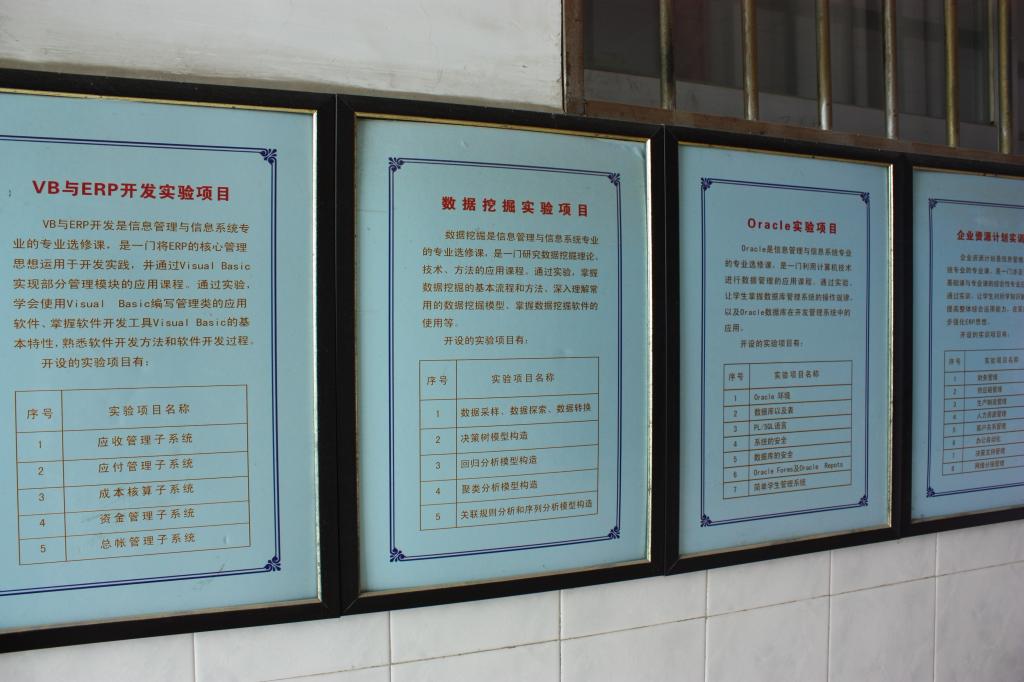 VB与ERP开发实验项目
VB与ERP开发是信息管理与信息系统专
业的专业选修课，是一门将ERP的核心管理
思想运用于开发实践，并通过Visual Basic
实现部分管理模块的应用课程。通过实验，
学会使用Visual Basic编写管理类的应用
软件、掌握软件开发工具Visual Basic的基
本特性，熟悉软件开发方法和软件开发过程。
开设的实验项目有：
序号 实验项目名称
1 应收管理子系统
2 应付管理子系统
3 成本核算子系统
4 资金管理子系统
5 总帐管理子系统
数据挖掘实验项目
数据挖掘是信息管理与信息系统专业
的专业选修课，是一门研究数据挖掘理论、
技术、方法的应用课程。通过实验，掌握
数据挖掘的基本流程和方法、深入理解常
用的数据挖掘模型、掌握数据挖掘软件的
使用等。
开设的实验项目有：
序号 实验项目名称
1 数据采样、数据探索、数据转换
2 决策树模型构造
3 回归分析模型构造
4 聚类分析模型构造
5 关联规则分析和序列分析模型构造
Oracle实验项目
Oracle是信息管理与信息系统专业
的专业选修课，是一门利用计算机技术
进行数据管理的应用课程。通过实验，
让学生掌握数据库管理系统的操作规律，
以及Oracle数据库在开发管理系统中的
应用。
开设的实验项目有：
序号 实验项目名称
1 Oracle 环境
2 数据库以及表
3 PL/SQL语言
4 系统的安全
5 数据库的安全
6 Oracle Forms及Oracle Repots
7 简单学生管理系统
企业资源计划实训
企业资源计划是信息管理
统专业的专业课，是一门涉及
基础课与专业课的综合性专业
通过实训，让学生对所学知识
提高整体综合运用能力，
步强化ERP思想。
开设的实训项目有：
序号 实训项目名称
1 财务管理
2 供应链管理
3 生产制造管理
4 人力资源管理
5 客户关系管理
6 办公自动化
7 决策支持管理
8 网络分销管理